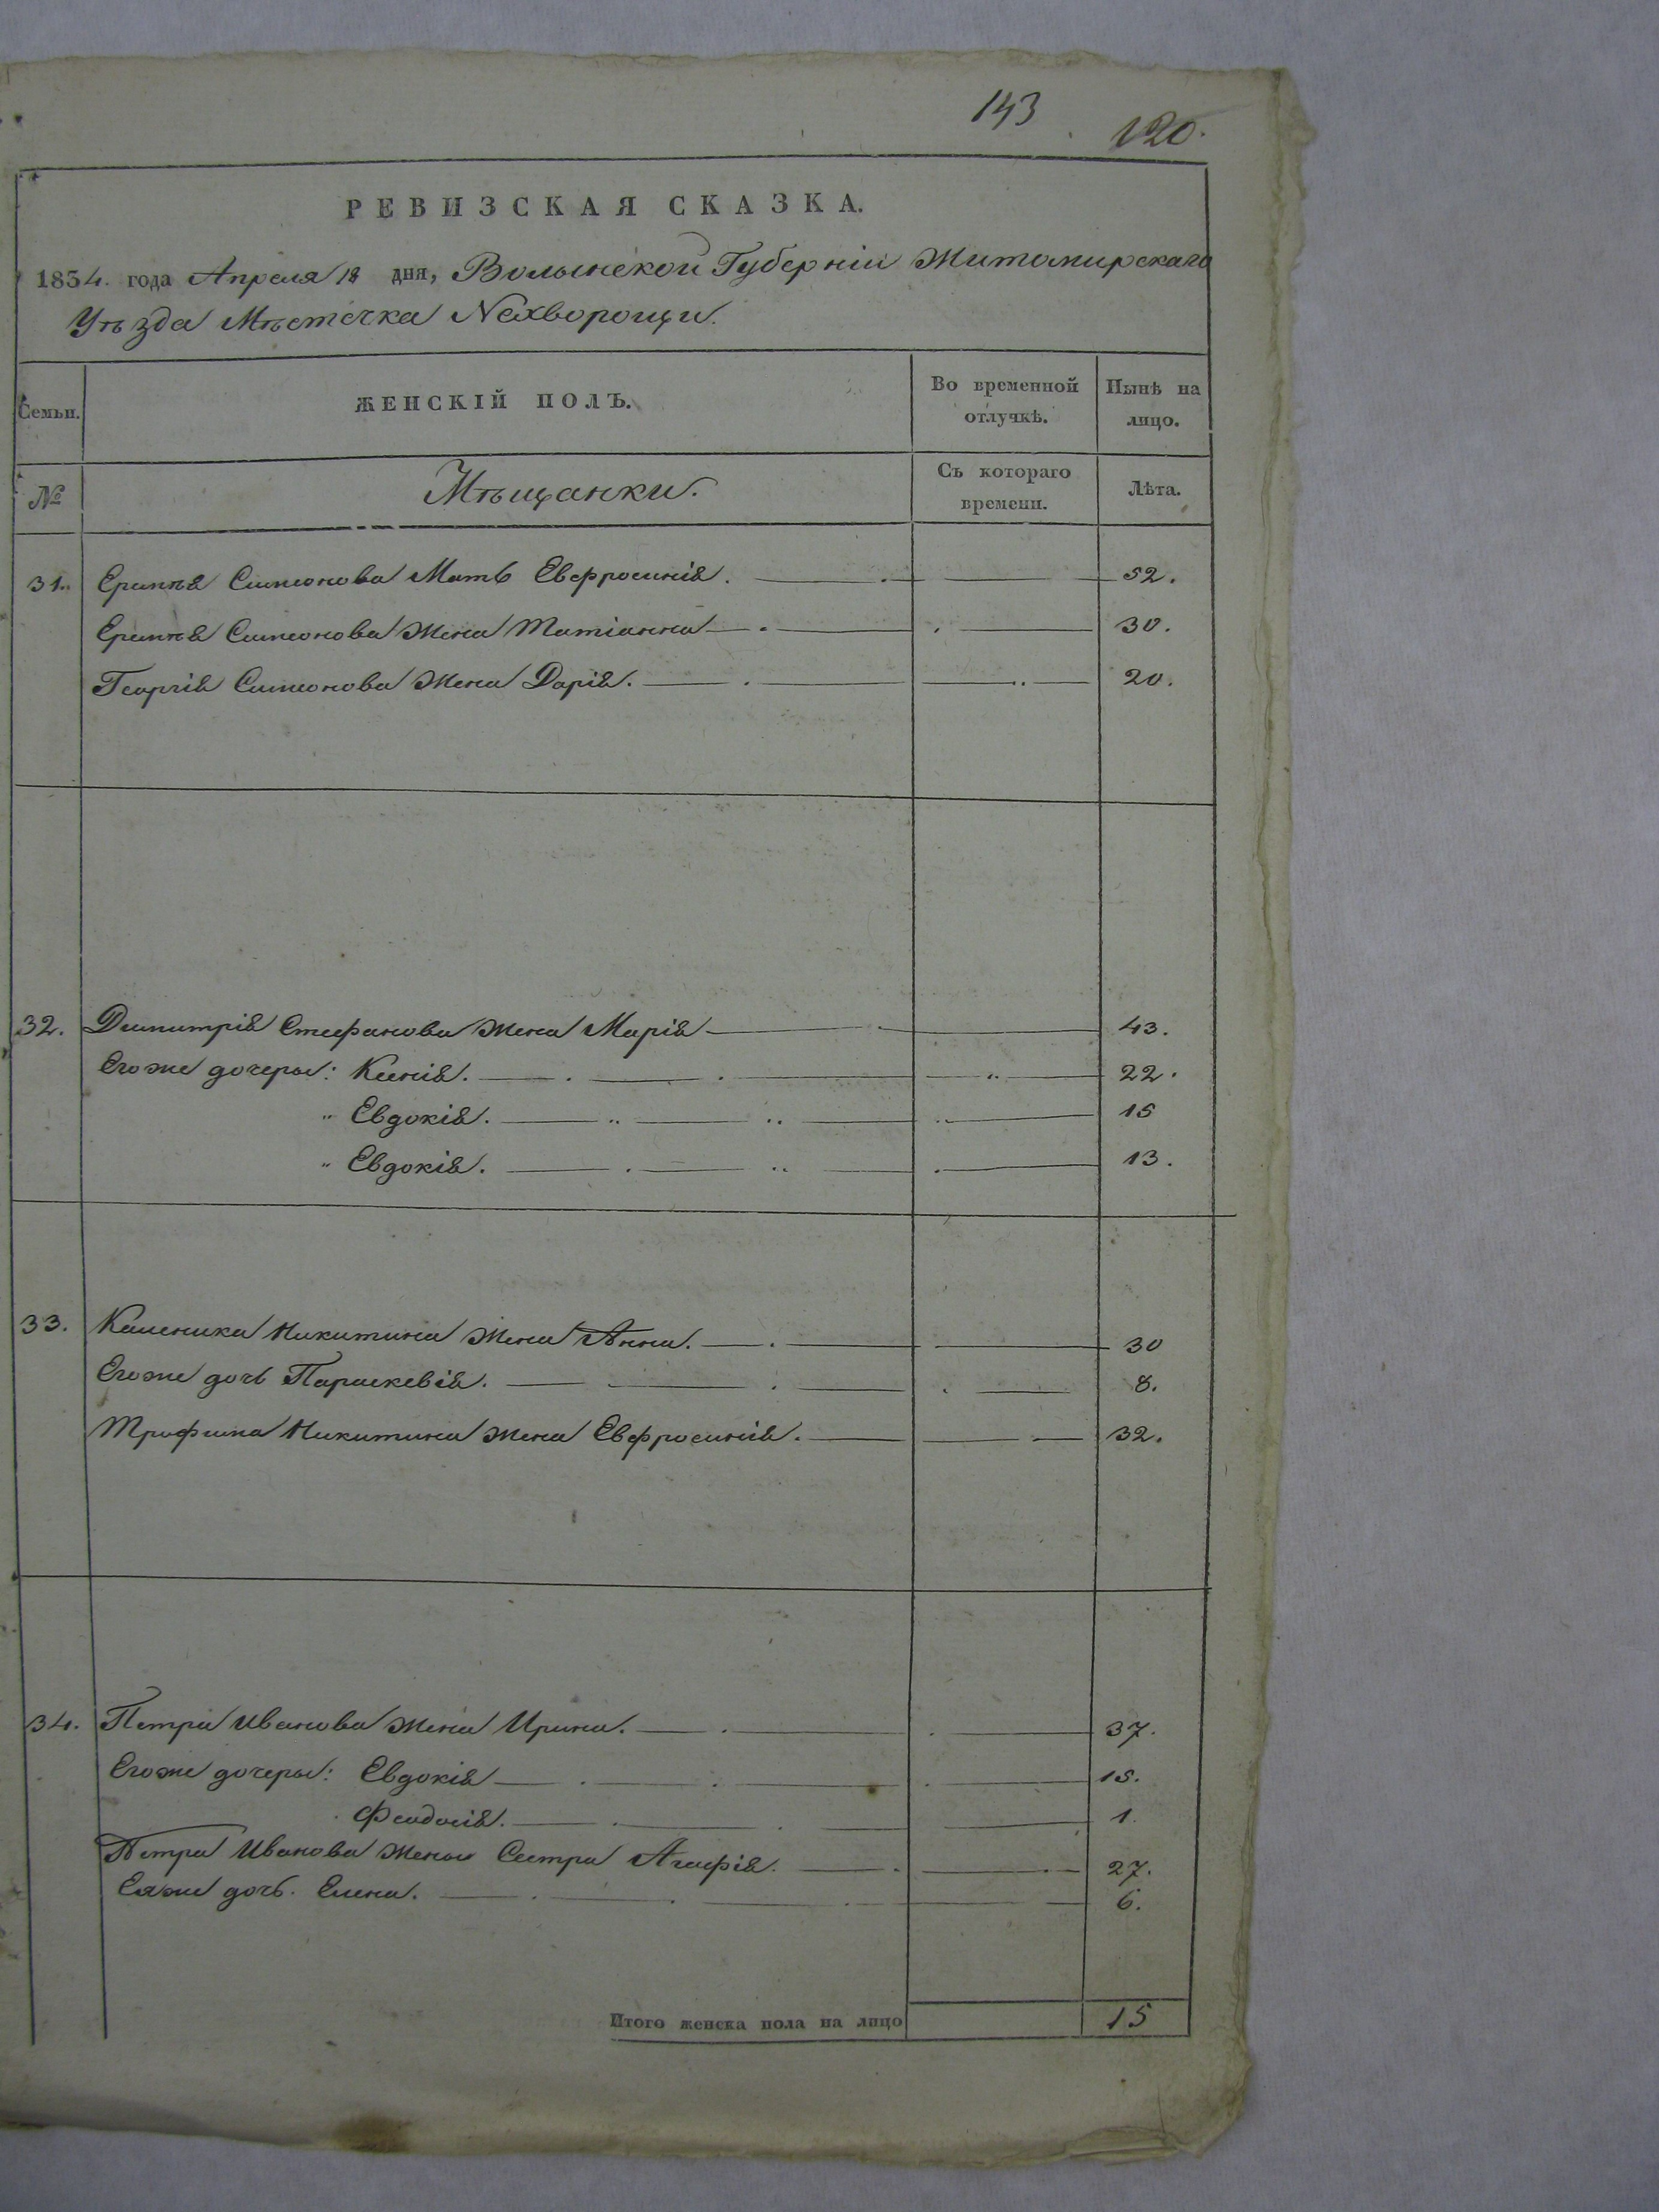 143
120.
РЕВИЗСКАЯ СКАЗКА.
1834. года Апреля 18 дня, Волынской Губерніи Житомирскаго
Уѣзда Мѣстечка Нехворощи.
Семьи. ЖЕНСКІЙ ПОЛЪ. Во временной отлучкѣ. Нынѣ на лицо.
№ Мѣщанки. Съ котораго времени. Лѣта.
31. Еримѣя Симонова Мать Евфросинія. 52.
Еримѣя Симонова Жена Татіанна 30.
Георгія Симонова Жена Дарія. 20.
32. Димитрія Стефанова Жена Марія 43.
Его же дочеры: Ксенія. 22.
" Евдокія. 15
" Евдокія. 13.
33. Каленика Никитина Жена Анна. 30
Его же дочь Параскевія. 8.
Трифона Никитина Жена Евфросинія. 32.
34. Петра Иванова Жена Ирина. 37.
Его же дочеры: Евдокія 15.
Феодосія. 1.
Петра Иванова Жены Сестра Агафія. 27.
Ея же дочь Елена. 6.
Итого женска пола на лицо 15